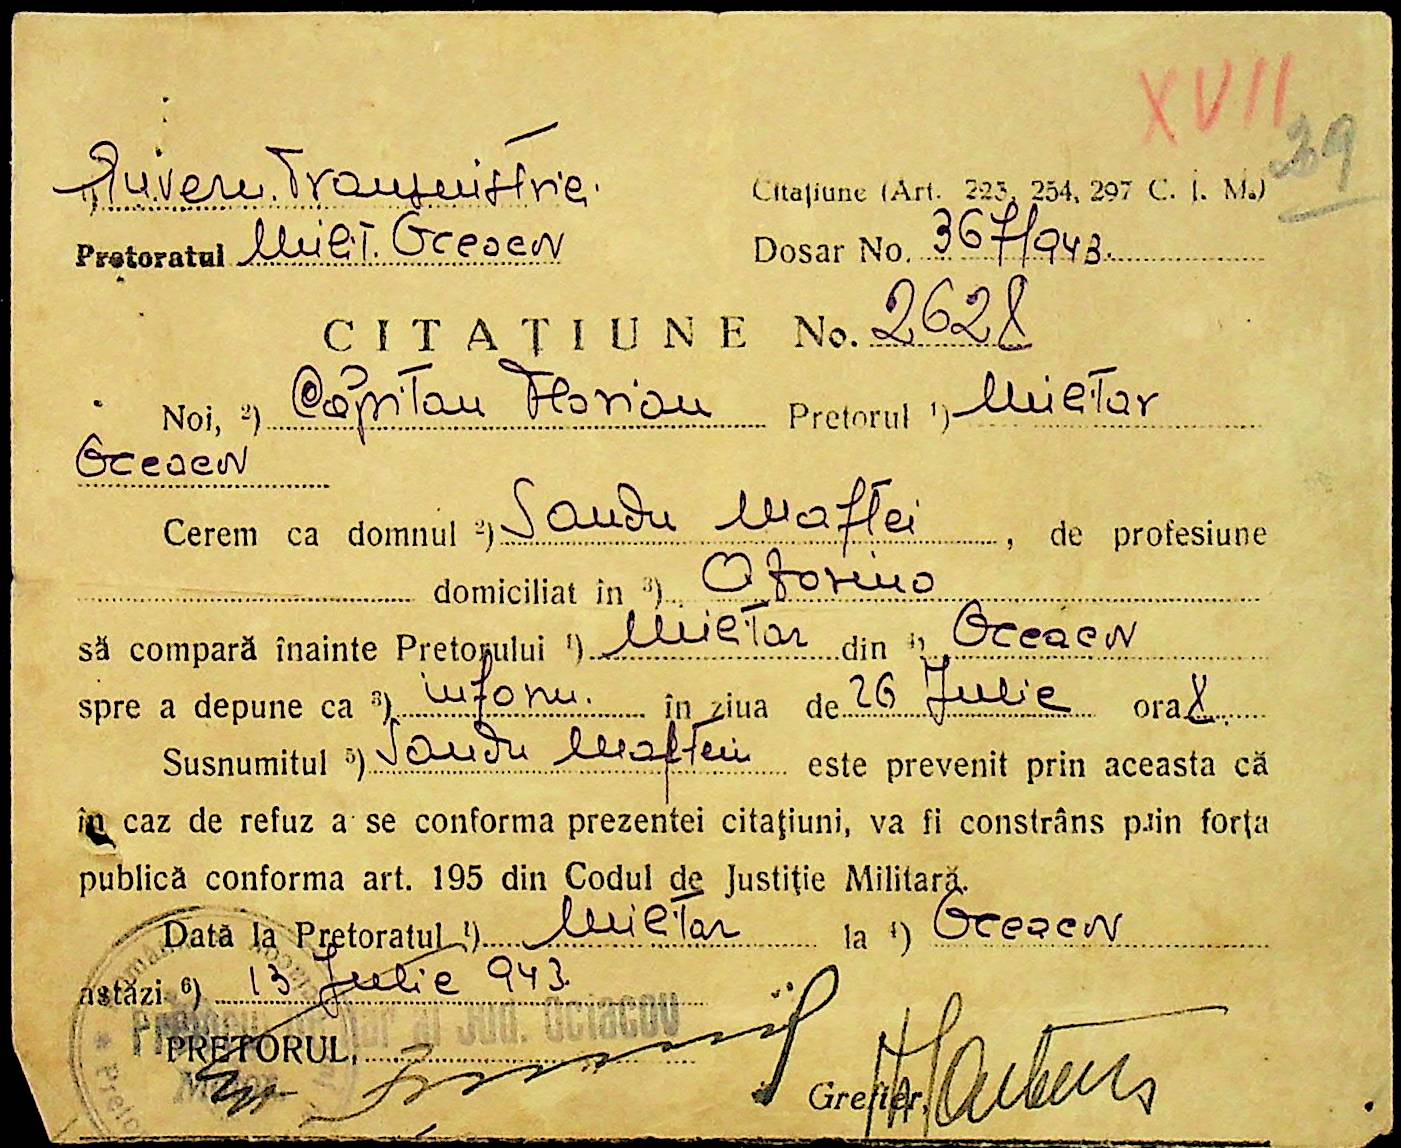 XVII
39
1) Guvern. Transnistriei
Citațiune (Art. 223, 254, 297 C. J. M.)
Pretoratul Milit. Oceacov
Dosar No. 367/943.
CITAȚIUNE No. 2628
Noi, 2) Căpitan Florian Pretorul 1) Militar
Oceacov
Cerem ca domnul 2) Sandu Maftei, de profesiune
domiciliat în 3)
să compară înainte Pretorului 1) Militar din 4) Oceacov
spre a depune ca 3) inform. în ziua de 26 Julie ora 8
Susnumitul 5) Sandu Maftei este prevenit prin aceasta că
în caz de refuz a se conforma prezentei citațiuni, va fi constrâns prin forța
publică conforma art. 195 din Codul de Justiție Militară.
Dată la Pretoratul 1) Militar la 4) Oceacov
astăzi 6) 13 Julie 943
al Jud. Ociacov
PRETORUL,
Grefier,